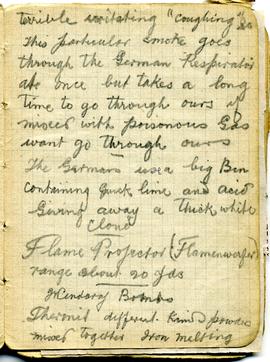 terrible irritating "coughing" Gas
This particular smoke goes
through the German Respirator
at once but takes a long
time to go through ours if
mixed with poisonous Gas
want go through ours
The Germans use a big Bin
containing quick lime and acid
Giving away a thick white
Cloud
Flame Projector (Flamenwerfer)
range about 20 yds
Bombs
different Kind powders
mixed together Iron melting